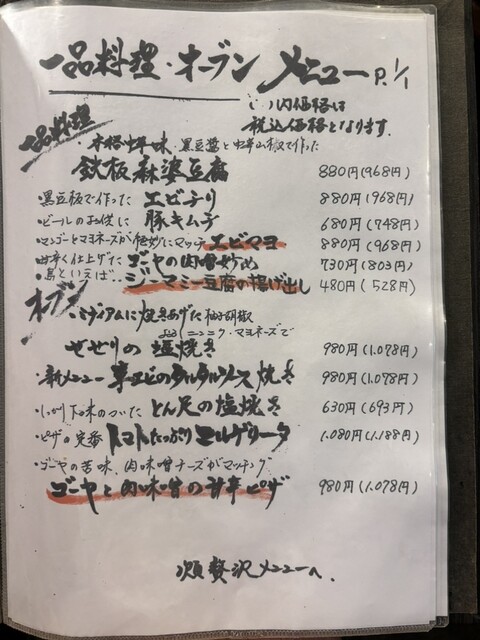 一品料理・オーブン メニュー P. 1/1
( )内価格は
税込価格となります。
一品料理
・本格中華味・黒豆醤と中華山椒で作った
鉄板麻婆豆腐 880円(968円)
・黒豆板で作った エビチリ 880円(968円)
・ビールのお供に 豚キムチ 680円(748円)
・マンゴーとマヨネーズが絶妙にマッチ エビマヨ 880円(968円)
・甘辛く仕上げた ゴーヤの肉味噌炒め 730円(803円)
・島といえば・・ ジーマミー豆腐の揚げ出し 480円(528円)
オーブン
・ミディアムに焼きあげた 柚子胡椒
ニンニク・マヨネーズで
せせりの塩焼き 980円(1.078円)
・新メニュー 車エビのタルタルソース焼き 980円(1.078円)
・しっかり下味のついた とん足の塩焼き 630円(693円)
・ピザの定番 トマトたっぷりマルゲリータ 1.080円(1.188円)
・ゴーヤの苦味、肉味噌チーズがマッチング
ゴーヤと肉味噌の甘辛ピザ 980円(1.078円)
贅沢メニューへ、